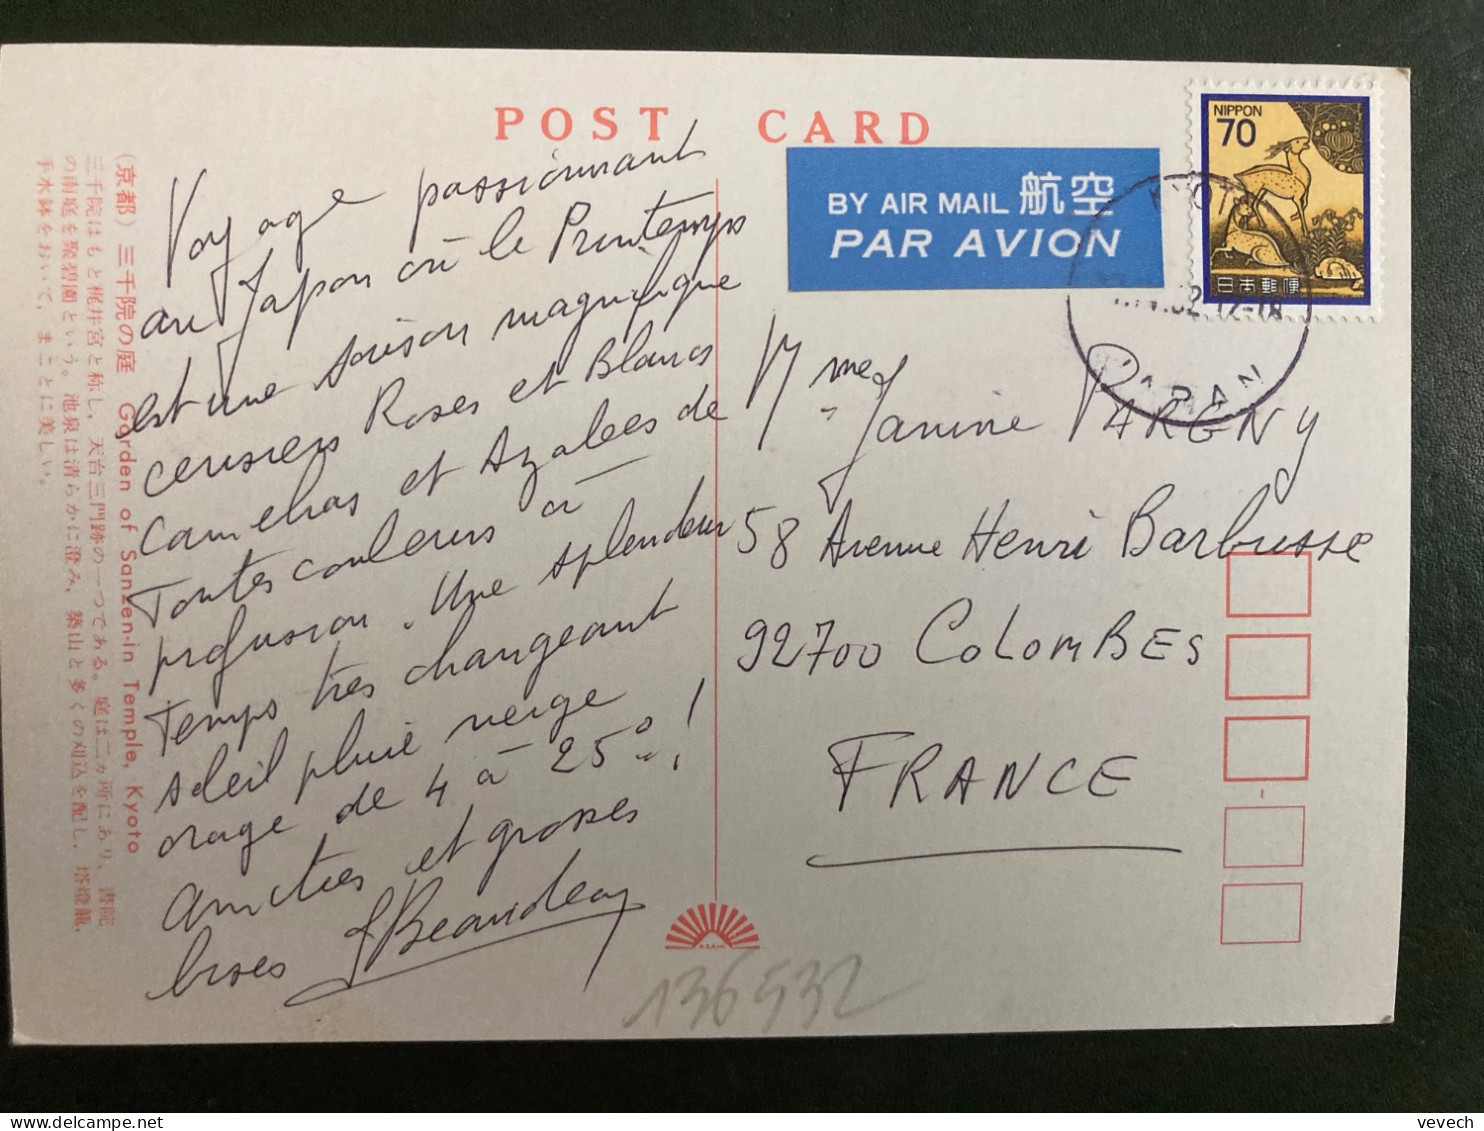 POST CARD
BY AIR MAIL 航空
PAR AVION
NIPPON
70
日本郵便
JAPAN
Voyage passionnant
au Japon où le Printemps
est une saison magnifique
cerisiers Roses et Blancs
Camelias et Azalées de
Toutes couleurs à
profusion. Une splendeur
Temps très changeant
soleil pluie neige
orage de 4 à 25° !
Amitiés et grosses
bises
Mme Janine PARGNY
58 Avenue Henri Barbusse
92700 COLOMBES
FRANCE
(京都) 三千院の庭 Garden of Sanzen-in Temple, Kyoto
三千院はもと梶井宮と称し、天台三門跡の一つである。庭は二ヵ所にあり、書院
の南庭を聚碧園という。池泉は清らかに澄み、築山と多くの刈込を配し、塔燈籠、
手水鉢をおいて、まことに美しい。
ASAHI
136532
vevech
delcampe.net